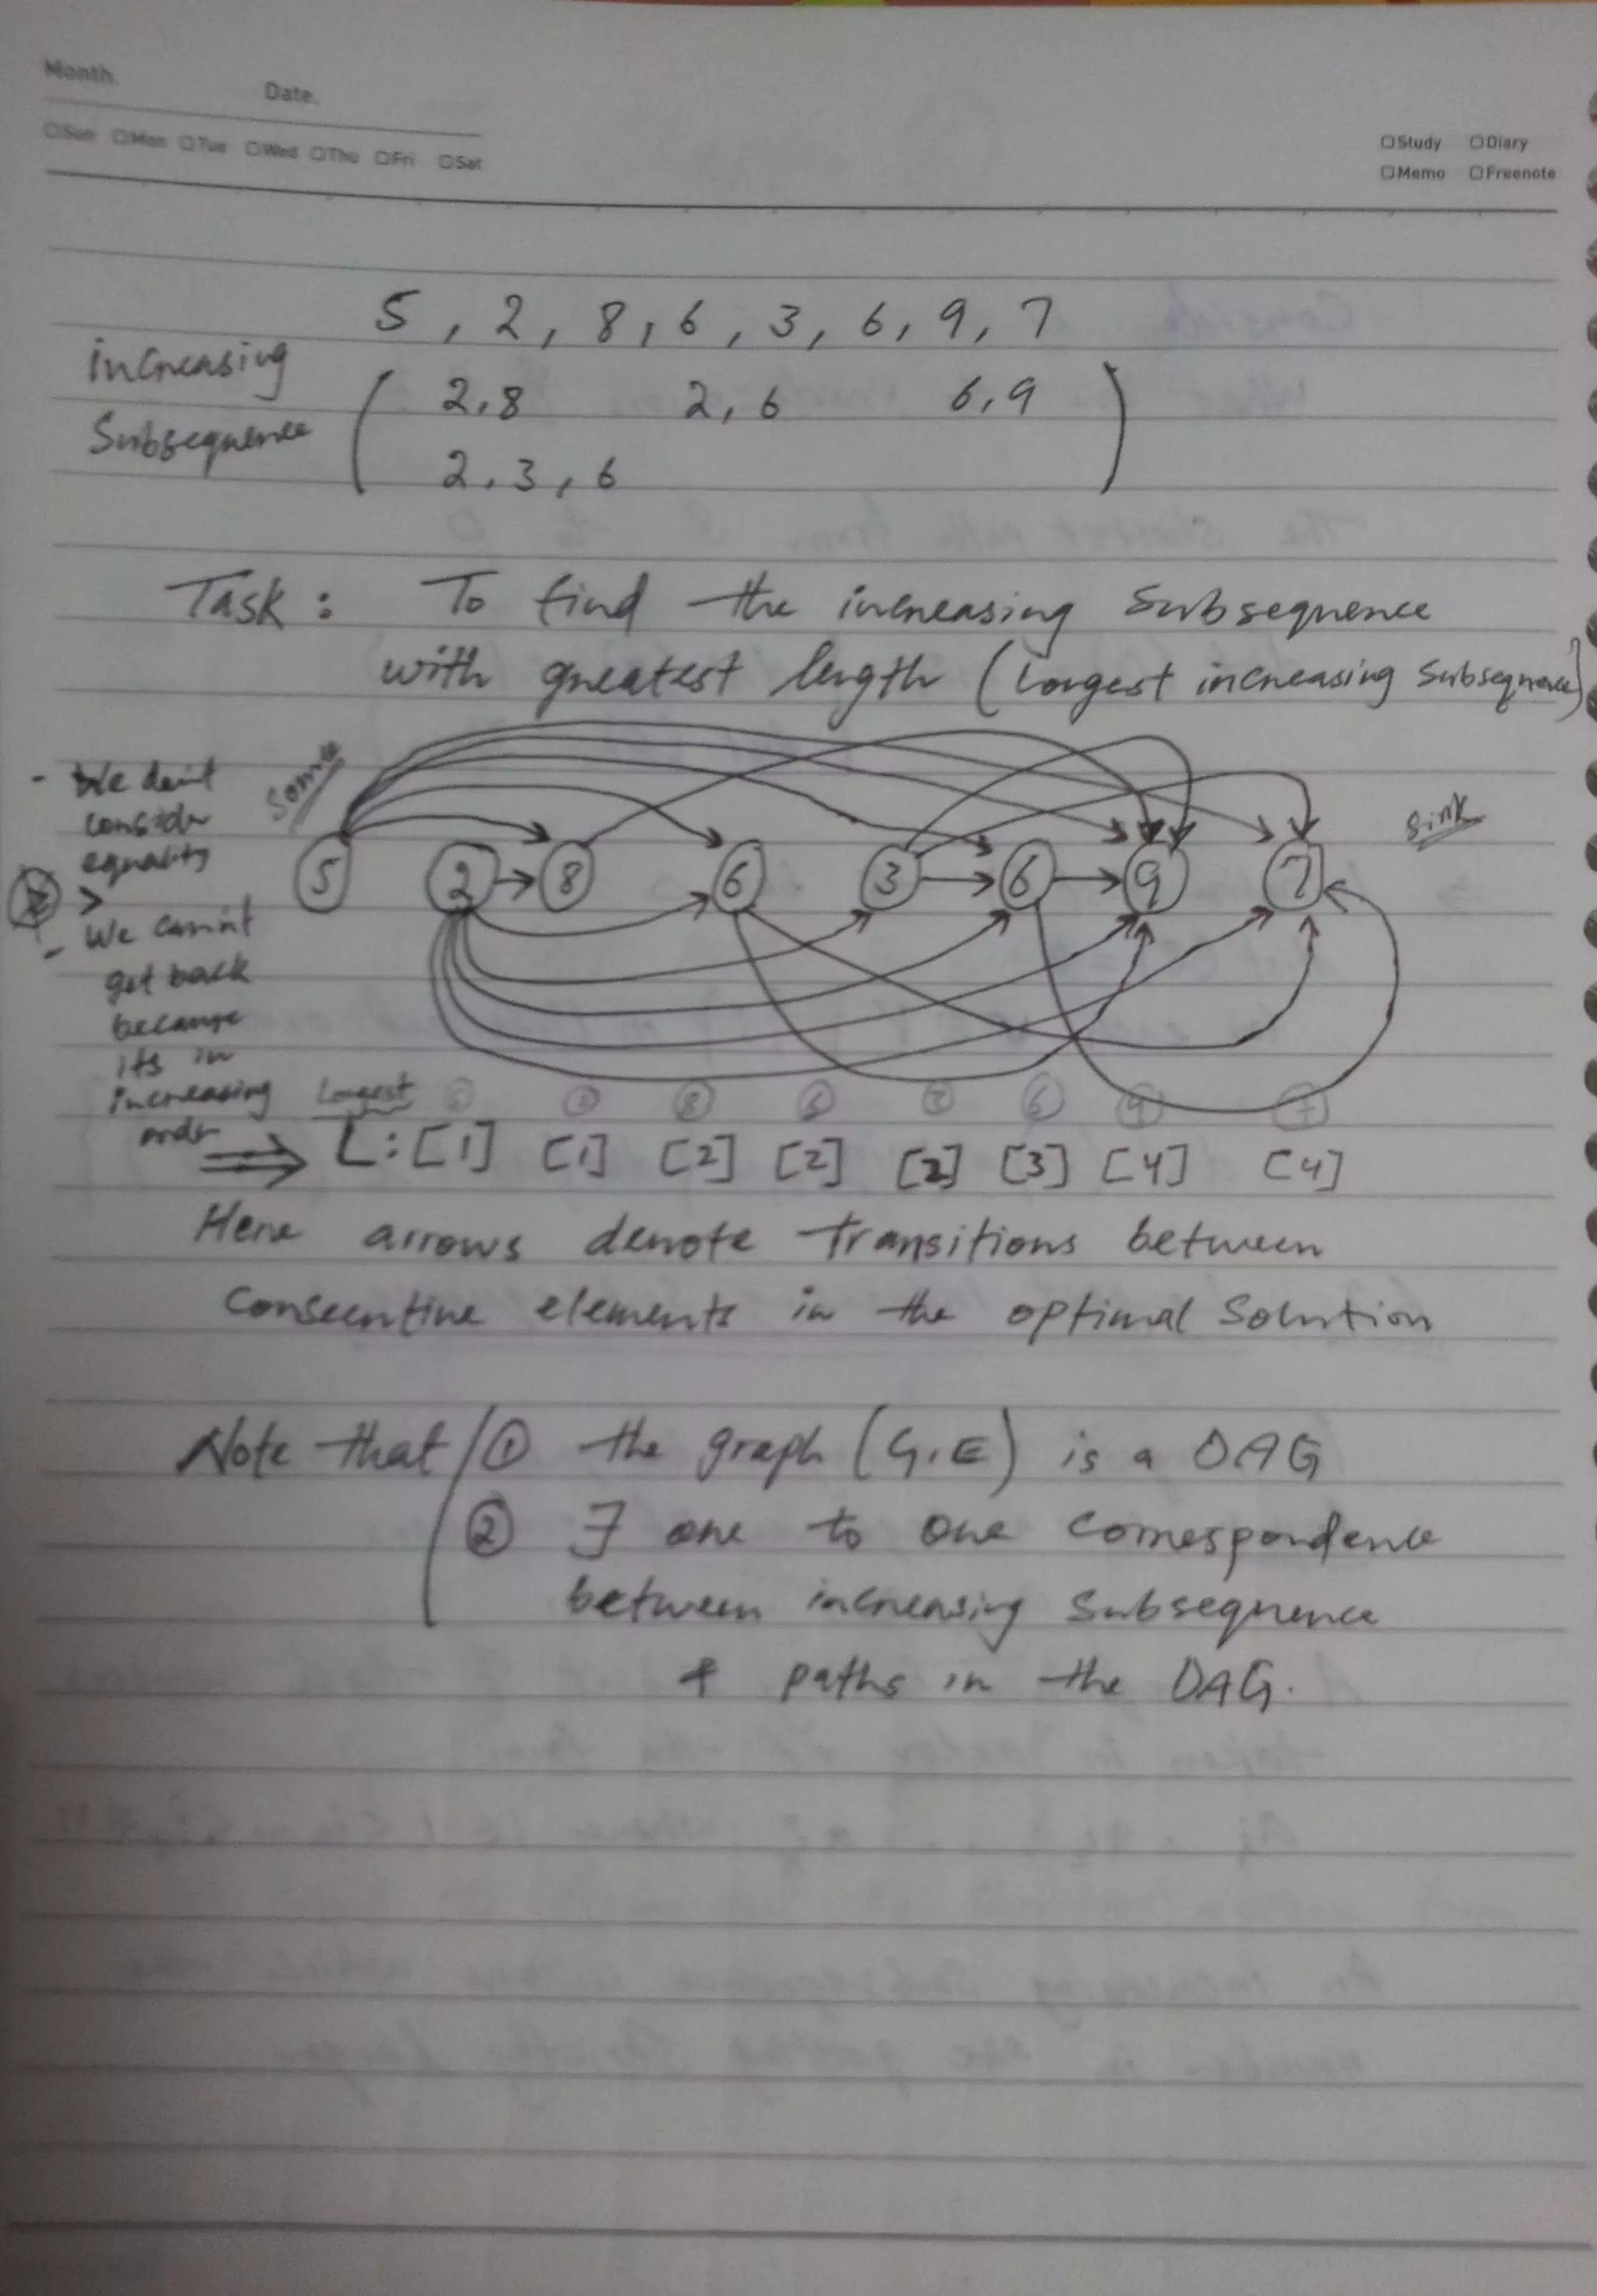 Month.
Date.
Sun Mon Tue Wed Thu Fri Sat
Study Diary
Memo Freenote
5, 2, 8, 6, 3, 6, 9, 7
increasing
Subsequence
( 2,8 2,6 6,9 )
2,3,6
Task: To find the increasing Subsequence
with greatest length (Longest increasing Subsequence)
- We don't
consider
equality
>
- We cannot
get back
because
its in
increasing
order
Sink
5 2 8 6 3 6 9 7
Longest 5 2 8 6 3 6 9 7
L: [1] [1] [2] [2] [2] [3] [4] [4]
Here arrows denote transitions between
Consecutive elements in the optimal Solution
Note that ① the graph (G,E) is a DAG
② ∃ one to one correspondence
between increasing Subsequence
& paths in the DAG.